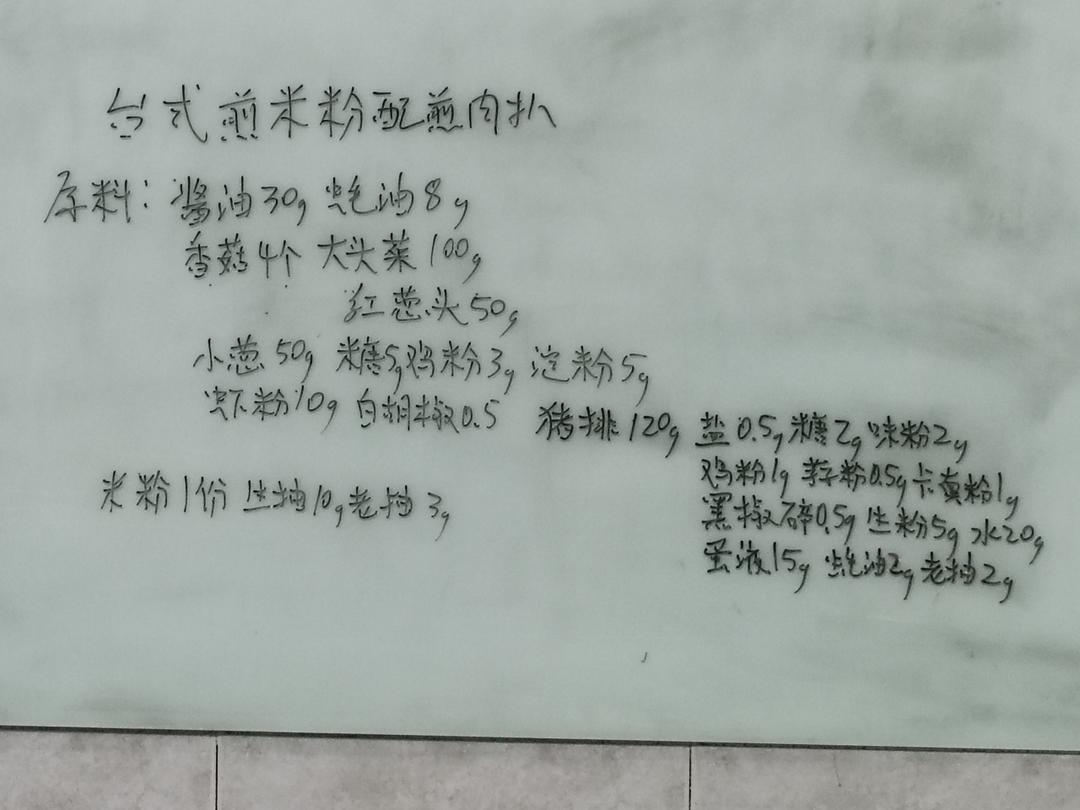 台式煎米粉配煎肉扒
原料：酱油30g 蚝油8g
香菇4个 大头菜100g
红葱头50g
小葱50g 糖5g鸡粉3g 淀粉5g
虾粉10g 白胡椒0.5
猪排120g 盐0.5g糖2g味粉2g
鸡粉1g 孛粉0.5g卡真粉1g
黑椒碎0.5g 生粉5g 水20g
蛋液15g 蚝油2g老抽2g
米粉1份 生抽10g老抽3g